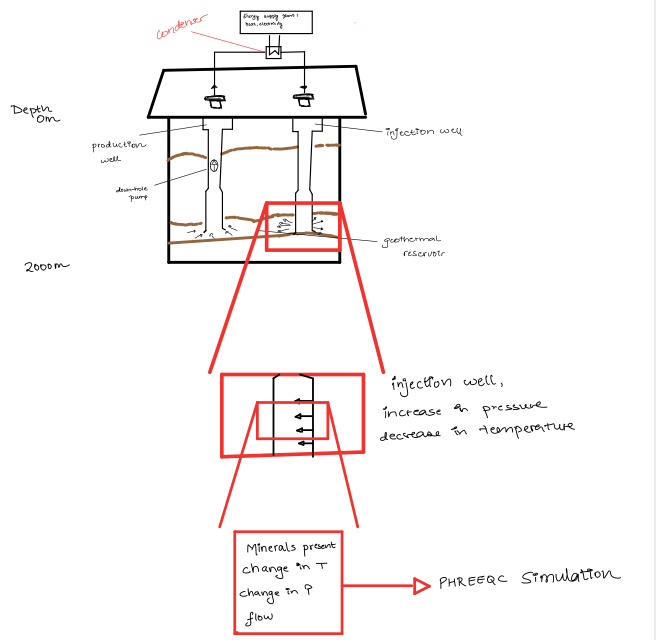 condenser
Energy supply plant:
heat, electricity
Depth
0m
production
well
injection well
down-hole
pump
geothermal
reservoir
2000m
injection well,
increase in pressure
decrease in temperature
Minerals present
change in T
change in P
flow
PHREEQC Simulation